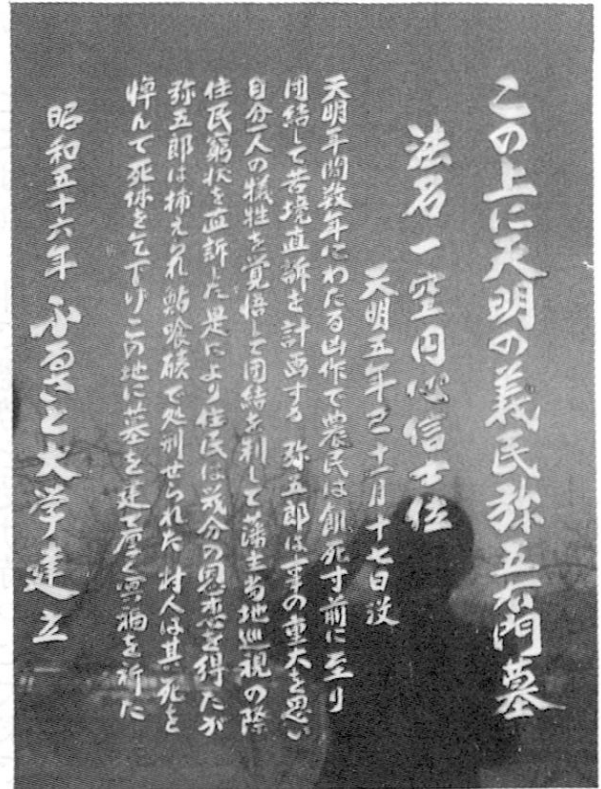 この上に天明の義民弥五右門墓
法名一空円心信士位
天明五年巳十二月十七日没
天明年間数年にわたる凶作で農民は餓死寸前に至り
団結して苦境直訴を計画する 弥五郎は事の重大を思い
自分一人の犠牲を覚悟して団結を制して藩主当地巡視の際
住民窮状を直訴した是により住民は幾分の恩恵を得たが
弥五郎は捕えられ鮎喰磧で処刑せられた 村人は其死を
悼んで死体を乞下げこの地に墓を建て厚く冥福を祈た
昭和五十六年 ふるさと大学建立